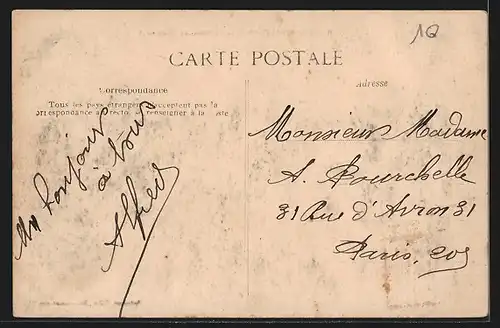 10
CARTE POSTALE
Correspondance
Tous les pays étrangers n'acceptent pas la
correspondance au recto, se renseigner à la Poste
Adresse
Un bonjour
à tous
Alfred
Monsieur Madame
A. Bourchelle
31 Rue d'Avron 31
Paris 20e